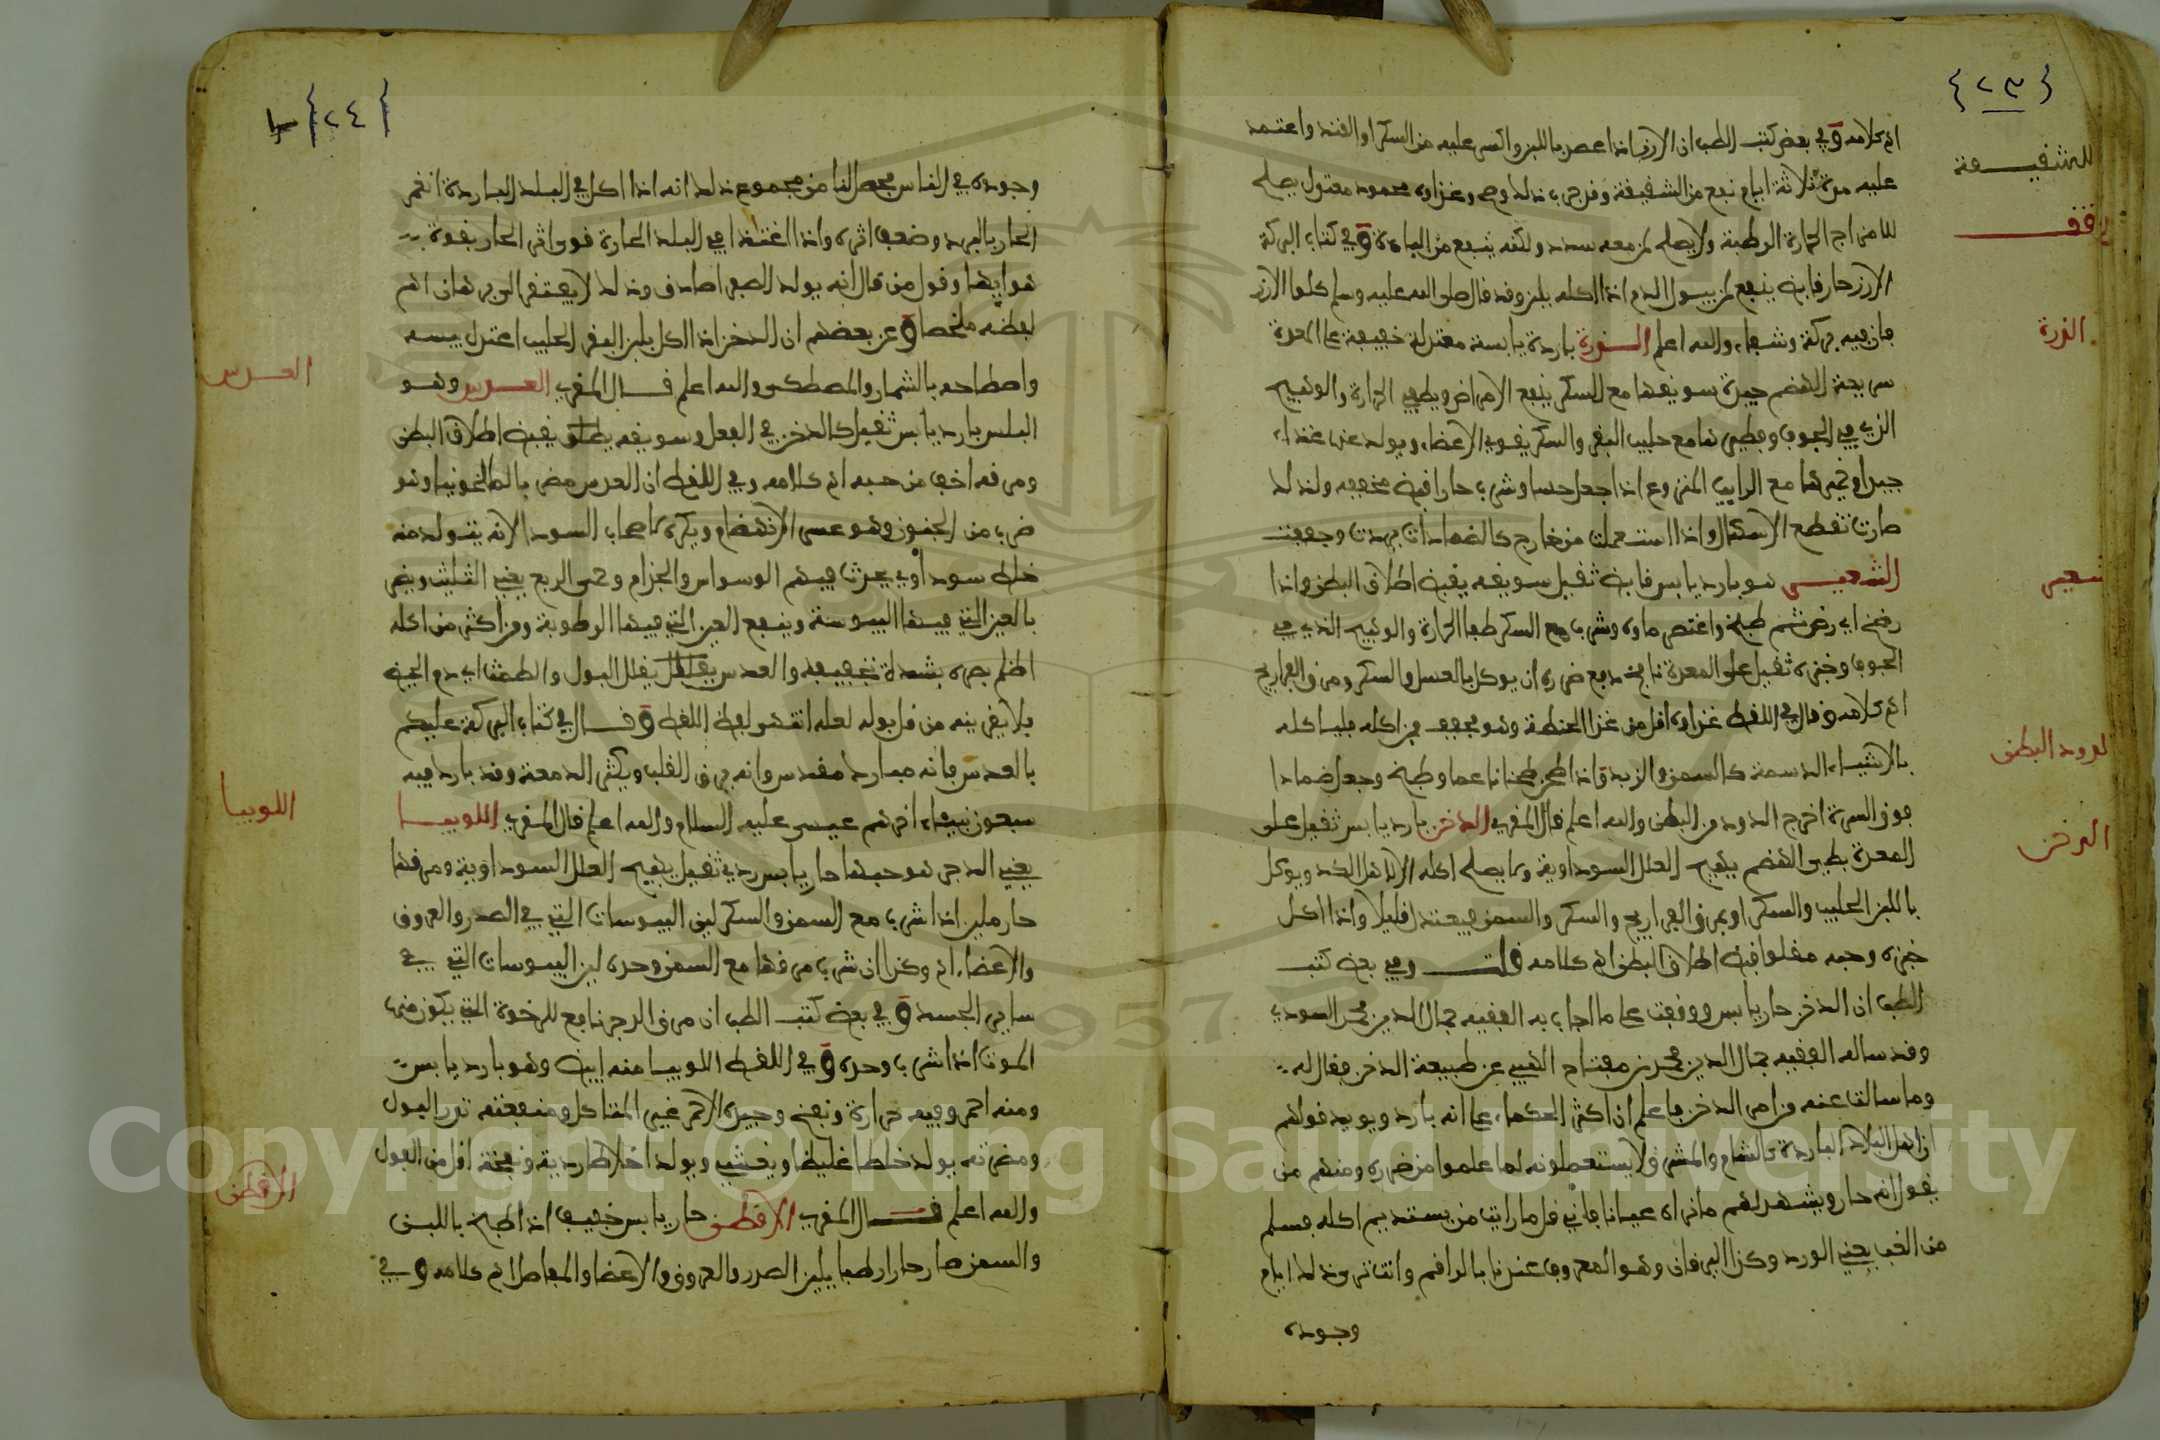 {٢٣}
انه كلامه وفي بعض كتب الطب ان الارز اذا عصر باللبن واكثر عليه من السكر او القند واعتمد
عليه مدة ثلاثة ايام نفع من الشقيقة وقد جرب ذلك وصح وغذاوه محمود معتدل يصلح
للامزاج الحارة الرطبة ولا يصلح لمن معه سدد ولكنه ينفع من الباءة وفي كتاب البركة
الارز حار قابض ينفع لمن يبول الدم اذا اكله بلبن وقد قال صلى الله عليه وسلم كلوا الارز
فان فيه بركة وشفاء والله اعلم الذرة باردة يابسة معتدلة خفيفة على المعدة
سريعة الهضم جيدة سويقها مع السكر ينفع الامراض ويطفي الحرارة والوهيج
الذي في الجوف وفطيرها مع حليب البقر والسكر يقوي الاعضاء ويولد عنه غذاء
جيدا وخميرها مع الرايب المنزوع اذا جعل حسا وشرب حارا فيه تجفيف ولذلك
صارت تقطع الاسهال واذا استعملت من خارج كالضمادات بردت وجففت
الشعير هو بارد يابس قابض ثقيل سويقه يقبض اطلاق البطن واذا
رض اي رض ثم طبخ واعتصر ماوه وشرب مع السكر طفا الحرارة والوهيج الذي في
الجوف وخبزه ثقيل على المعدة نافخ يدفع ضرره ان يوكل بالعسل والسكر ومرق الفراريج
انه كلامه وقال في اللفظ غذاوه اقل من غذا الحنطة وهو يجفف فمن اكله فلياكله
بالاشياء الدسمة كالسمن والزبد واذا طحن طحنا ناعما وطبخ وجعل ضمادا
فوق السرة اخرج الدود من البطن والله اعلم قال المقري الدخن بارد يابس ثقيل على
المعدة بطي الهضم يهيج العلل السوداوية وما يصلح اكله الا لاهل الكد ويوكل
باللبن الحليب والسكر او بمرق الفراريج والسكر والسمن فيعتدل قليلا واذا اكل
خبزه وحبه مقلوا قبض اطلاق البطن انه كلامه قلت وفي بعض كتب
الطب ان الدخن حار يابس ووقفت على ما اجاب به الفقيه جمال الدين محمد السودي
وقد ساله الفقيه جمال الدين محمد بن مفتاح الهبي عن طبيعة الدخن فقال له
وما سالت عنه من امر الدخن فاعلم ان اكثر الحكماء على انه بارد ويويد قولهم
ان اهل البلاد الباردة كالشام والمشرق لا يستعملونه لما علموا من ضرره ومنهم من
يقول انه حار ويشهد لهم ما نراه عيانا فاني قل ما رايت من يستديم اكله فسلم
من الحب يعني الورد وكذا اليرقان وهو المعروف عندنا بالراقم وانت ترى وذلك ايام
وجوده
للشقيقة
قف
الذرة
شعير
لدود البطن
الدخن
{٢٤}
وجوده في الناس فحصل لنا من مجموع ذلك انه اذا اكل في البلد الباردة انغمر
الحار بالبرد وضعف اثره واذا اغتذا في البلد الحارة قوي اثر الحار بقوة
هوايها وقول من قال انه يولد الصفرا صادق وذلك لا يفتقر الى برهان انه
لفظه ملخصا وعن بعضهم ان الدخن اذا اكل بلبن البقر الحليب اعتدل يبسه
واصلاحه بالشمار والمصطكي والله اعلم قال المقري العدس وهو
البلس بارد يابس ثقيل كالدخن في الفعل وسويقه يقبض اطلاق البطن
ومرقه اخف من حبه انه كلامه وفي اللفظ ان العدس مضر بالمالنخوليا وهو
ضرب من الجنون وهو عسر الانهضام ويكره لاصحاب السودا لانه يتولد منه
خلط سوداوي يحدث فيهم الوسواس والجذام وحمى الربع يعني الثلث ويضر
بالعين التي فيها اليبوسة وينفع العين التي فيها الرطوبة ومن اكثر من اكله
اظلم بصره بشدة تجفيفه والعدس يقلل البول والطمث اي دم الحيض
فلا يقربنه من قل بوله لعله انتهى لفظ اللفظ وقال في كتاب البركة عليكم
بالعدس فانه مبارك مقدس وانه يرق القلب ويكثر الدمعة وقد بارك فيه
سبعون نبيا اخرهم عيسى عليه السلام والله اعلم قال المقري اللوبيا
يعني الدجر هو حبها حار يابس ردي ثقيل يهيج العلل السوداوية ومرقها
حار ملين اذا شرب مع السمن والسكر لين اليبوسات التي في الصدر والعروق
والاعضاء انه وكذا ان شرب مرقها مع السمن وحده لين اليبوسات التي في
ساير الجسد وفي بعض كتب الطب ان مرق الدجر نافع للرخوة التي يكون منها
الموت اذا شرب وحده وفي اللفظ اللوبيا منه ابيض وهو بارد يابس
ومنه احمر وفيه حرارة ونفخ وجيده الاحمر غير المتاكل ومنفعته تدر البول
ومضرته يولد خلطا غليظا ويغثي ويولد اخلاطا ردية ونفخه اقل من الفول
والله اعلم قال المقري الاقطن حار يابس خفيف اذا طبخ باللبن
والسمن صار حارا رطبا يلين الصدر والعروق والاعضا والمفاصل انه كلامه وفي
العدس
اللوبيا
الاقطن